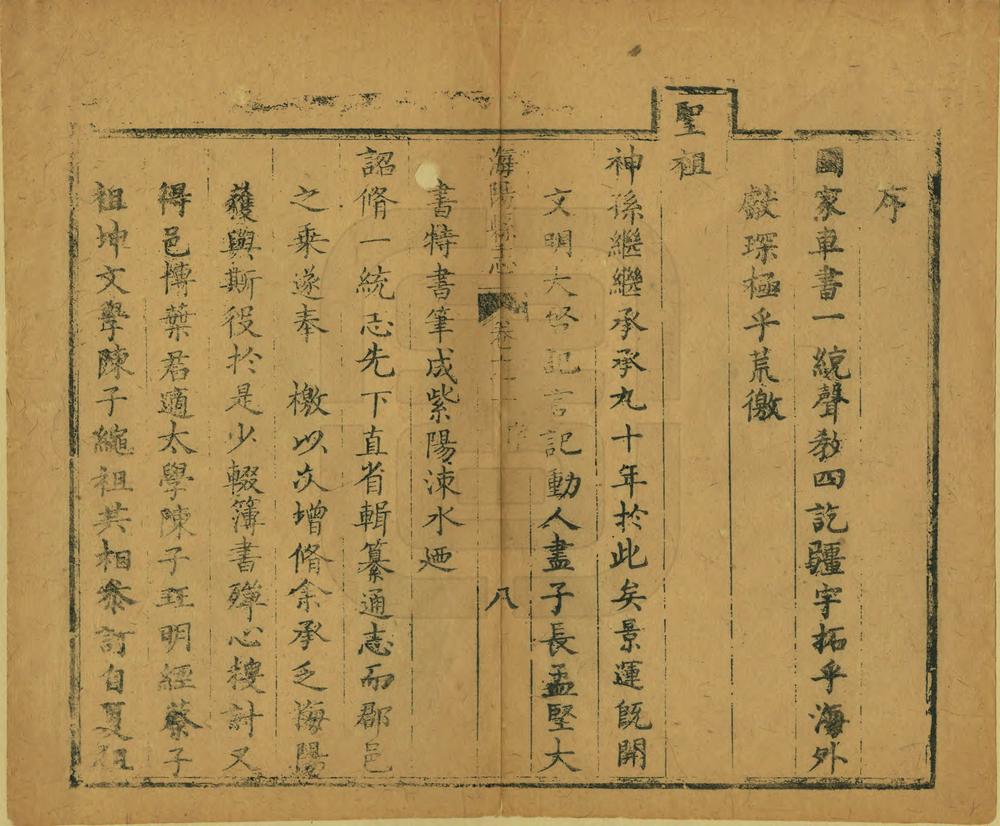 序
國家車書一統聲教四訖疆宇拓乎海外
獻琛極乎荒徼
聖祖
神孫繼繼承承九十年於此矣景運旣開
文明大啓記言記動人盡子長孟堅大
海陽縣志 卷十二 序 八
書特書筆成紫陽涑水廼
詔脩一統志先下直省輯纂通志而郡邑
之乘遂奉 檄以次增脩余承乏海陽
獲與斯役於是少輟簿書殫心摟討又
得邑慱葉君適太學陳子珏明經蔡子
祖坤文學陳子繩祖共相叅訂自夏徂